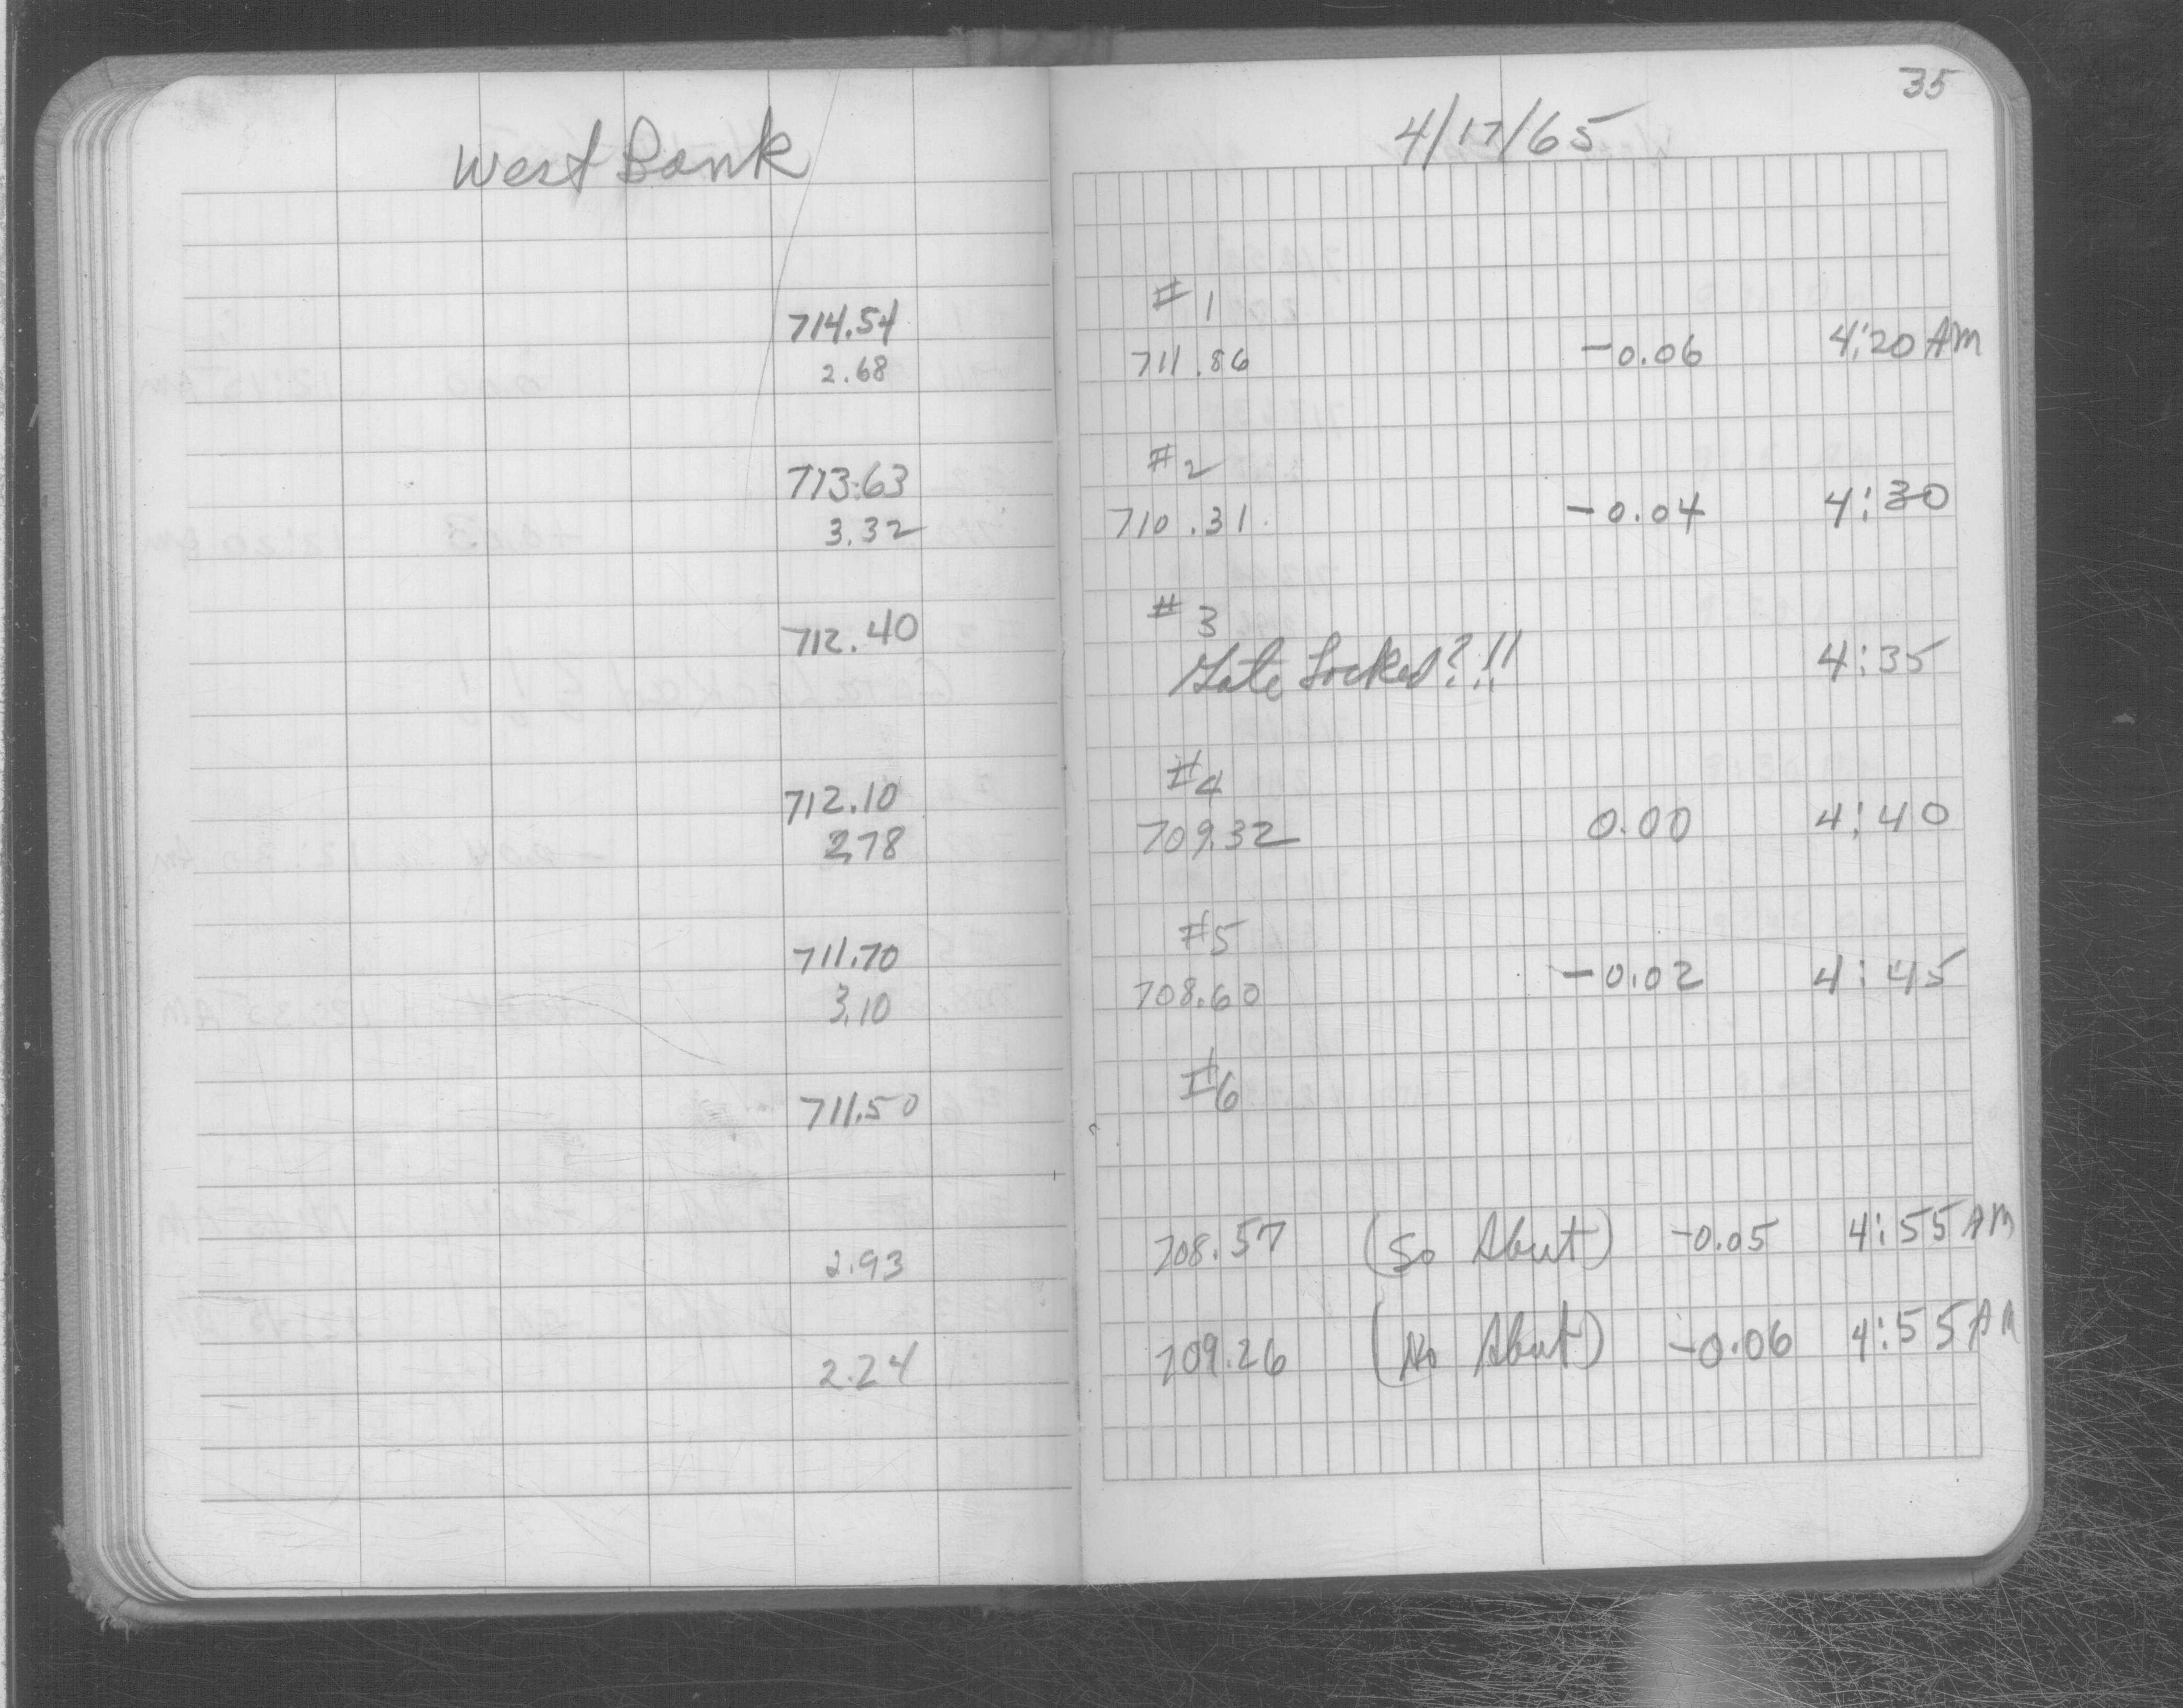 West Bank
714.54
2.68
713.63
3.32
712.40
712.10
2.78
711.70
3.10
711.50
2.93
2.24
35
4/17/65
#1
711.86 -0.06 4:20 AM
#2
710.31 -0.04 4:30
#3
Gate Locked?!! 4:35
#4
709.32 0.00 4:40
#5
708.60 -0.02 4:45
#6
708.57 (So Abut) -0.05 4:55 AM
709.26 (No Abut) -0.06 4:55 AM